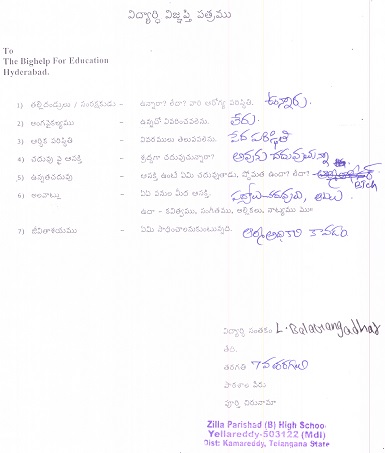 విద్యార్థి విజ్ఞప్తి పత్రము
To
The Bighelp For Education
Hyderabad.
1) తల్లీదండ్రులు / సంరక్షకుడు - ఉన్నారా? లేదా? వారి ఆరోగ్య పరిస్థితి. ఉన్నారు.
2) అంగవైకల్యము - ఉన్నచో వివరించవలెను. లేదు.
3) ఆర్థిక పరిస్థితి - వివరములు తెలుపవలెను. పేద పరిస్థితి
4) చదువు పై ఆసక్తి - శ్రద్ధగా చదువుచున్నారా? అవును చదువుతున్నా
5) ఉన్నతచదువు - ఆసక్తి ఉంటే ఏమి చదువుతాడు, స్తోమత ఉందా? లేదా? - Btch
6) అలవాట్లు - ఏఏ పనుల మీద ఆసక్తి.
ఉదా - కవిత్వము, సంగీతము, ఆర్టికలు, నాట్యము ము॥
7) జీవితాశయము - ఏమి సాధించాలనుకుంటున్నది. కావడం
విద్యార్థి సంతకం L. Balavrangadhar
తేది.
తరగతి 7వ తరగతి
పాఠశాల పేరు
పూర్తి చిరునామా
Zilla Parishad (B) High Schoo
Yellareddy-503122 (Mdl)
Dist: Kamareddy, Telangana State